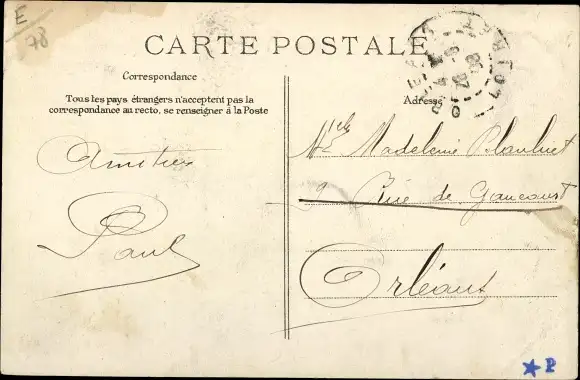 E
78
CARTE POSTALE
Correspondance
Tous les pays étrangers n'acceptent pas la
correspondance au recto, se renseigner à la Poste
Amitiés
Paul
Adresse
Mlle Madeleine
9 Rue de Gaucourt
Orléans
LOIRET
★ P